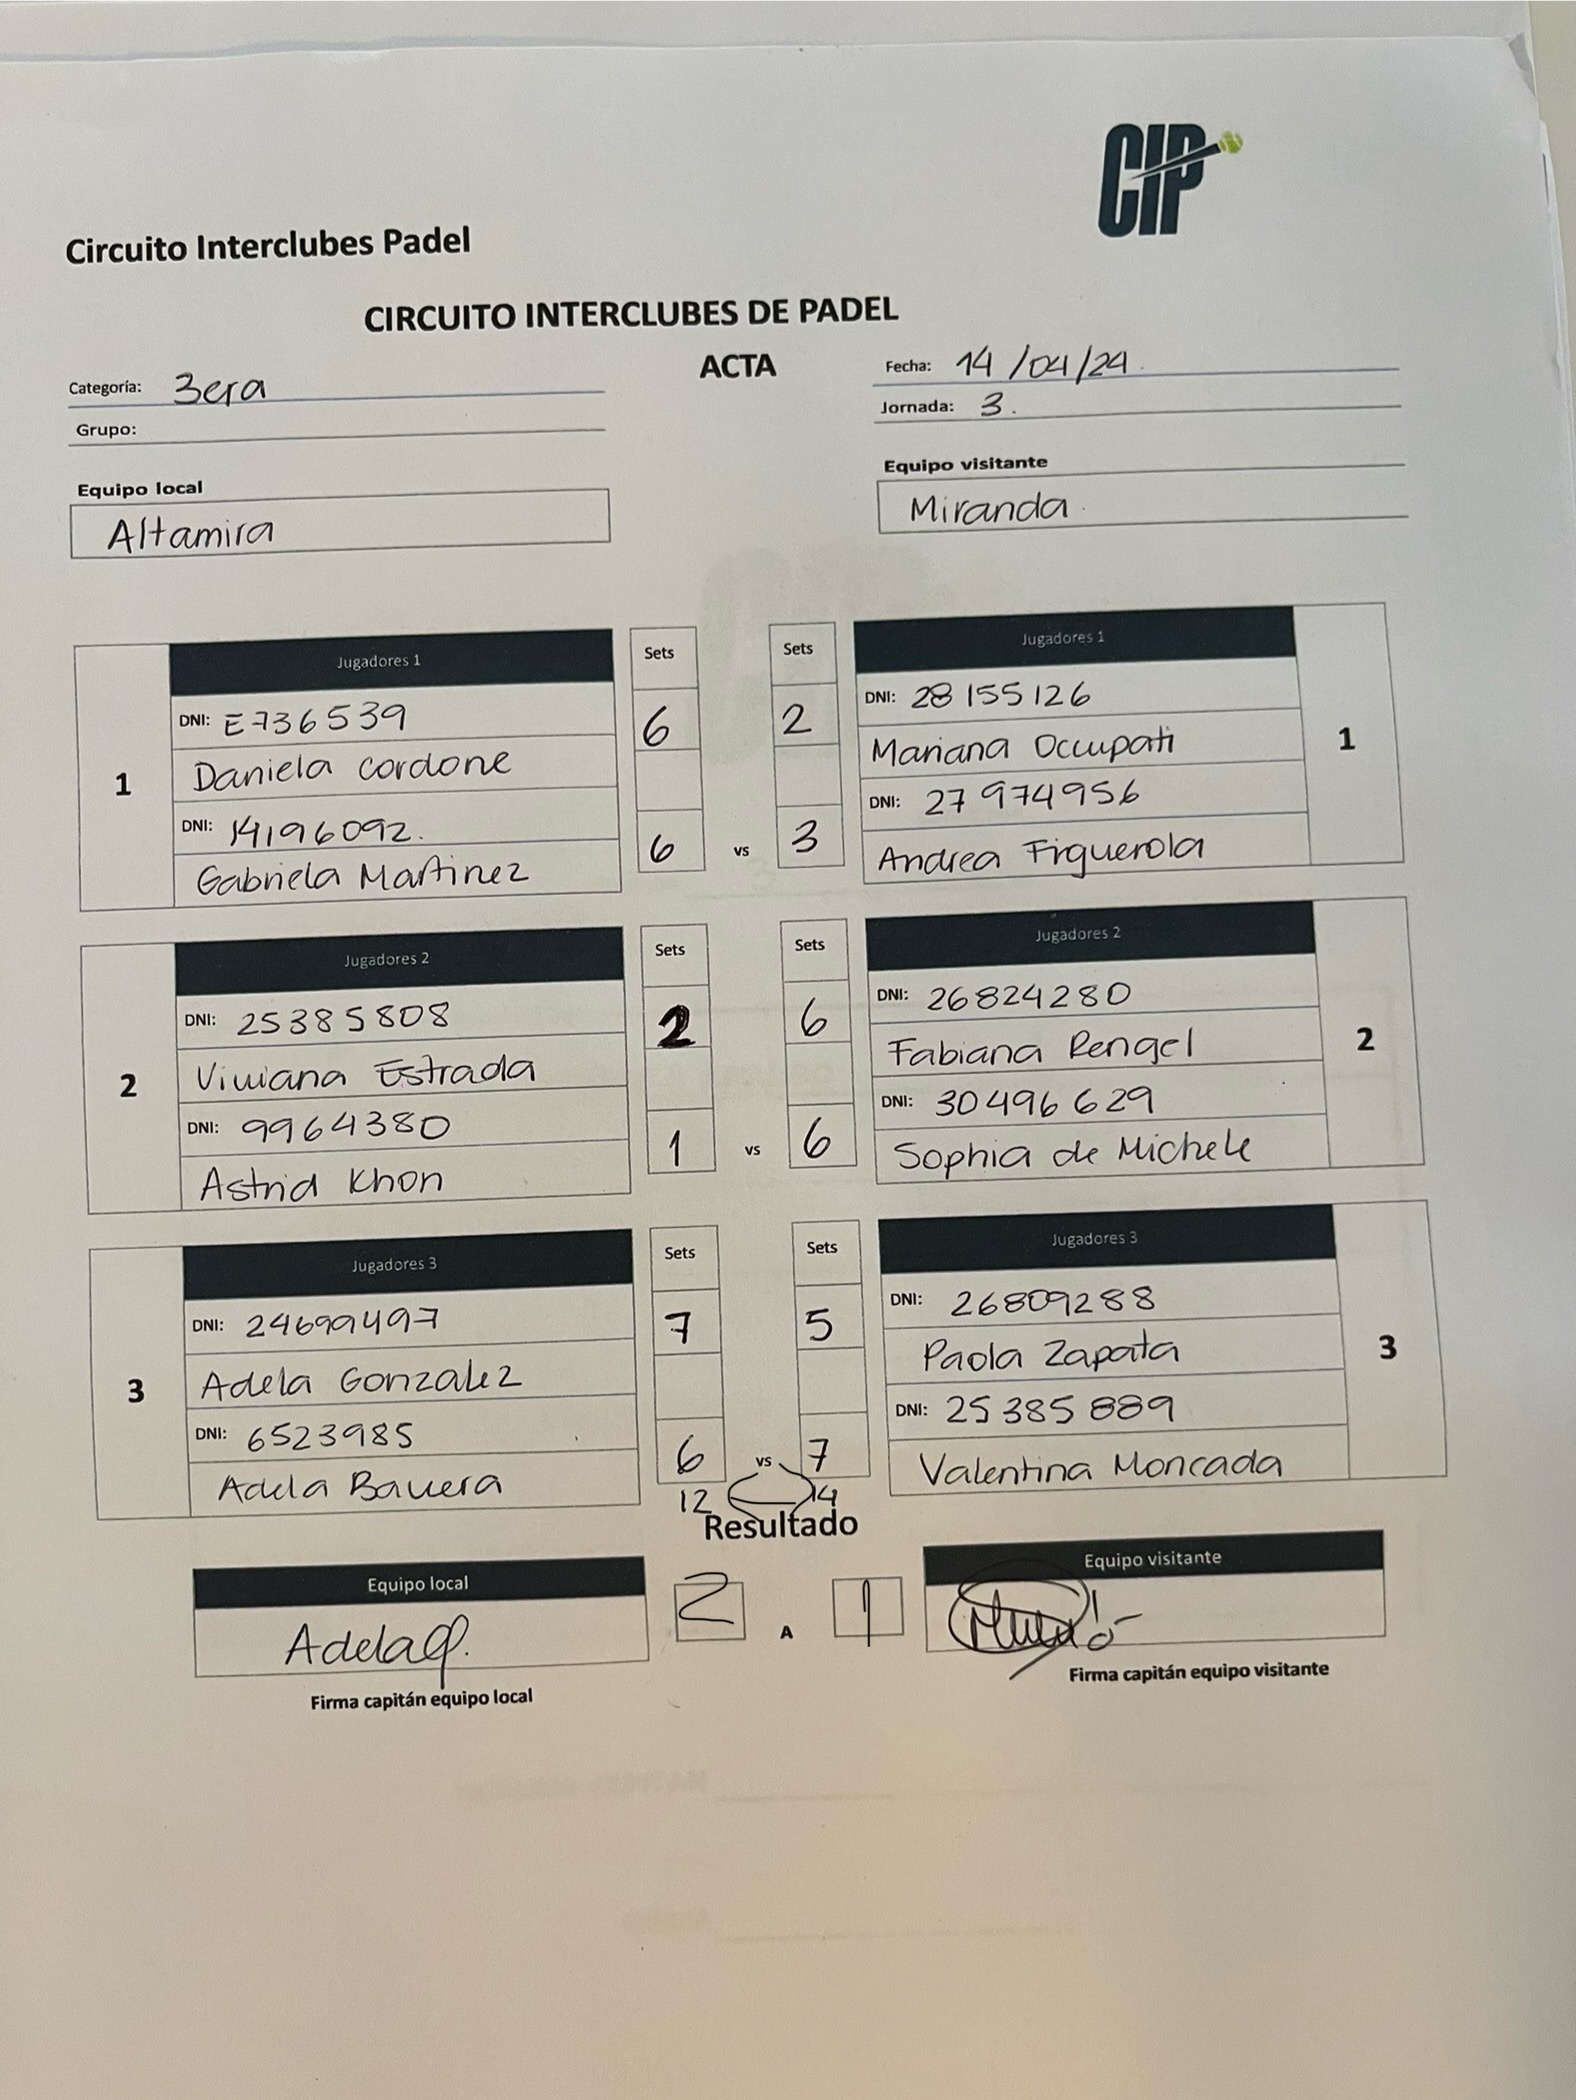 CIP
Circuito Interclubes Padel
CIRCUITO INTERCLUBES DE PADEL
ACTA
Categoría: 3era
Grupo:
Fecha: 14/04/24.
Jornada: 3.
Equipo local
Altamira
Equipo visitante
Miranda.
1
Jugadores 1
DNI: E736539
Daniela Cordone
DNI: 14196092.
Gabriela Martinez
Sets
6
6
vs
Sets
2
3
Jugadores 1
DNI: 28155126
Mariana Occupati
DNI: 27974956
Andrea Figuerola
1
2
Jugadores 2
DNI: 25385808
Viviana Estrada
DNI: 9964380
Astrid Khon
Sets
2
1
vs
Sets
6
6
Jugadores 2
DNI: 26824280
Fabiana Rengel
DNI: 30496629
Sophia de Michele
2
3
Jugadores 3
DNI: 24699497
Adela Gonzalez
DNI: 6523985
Adela Bavera
Sets
7
6
12
vs
Sets
5
7
14
Jugadores 3
DNI: 26809288
Paola Zapata
DNI: 25385889
Valentina Moncada
3
Resultado
Equipo local
Adela
Firma capitán equipo local
2
A
1
Equipo visitante
Firma capitán equipo visitante